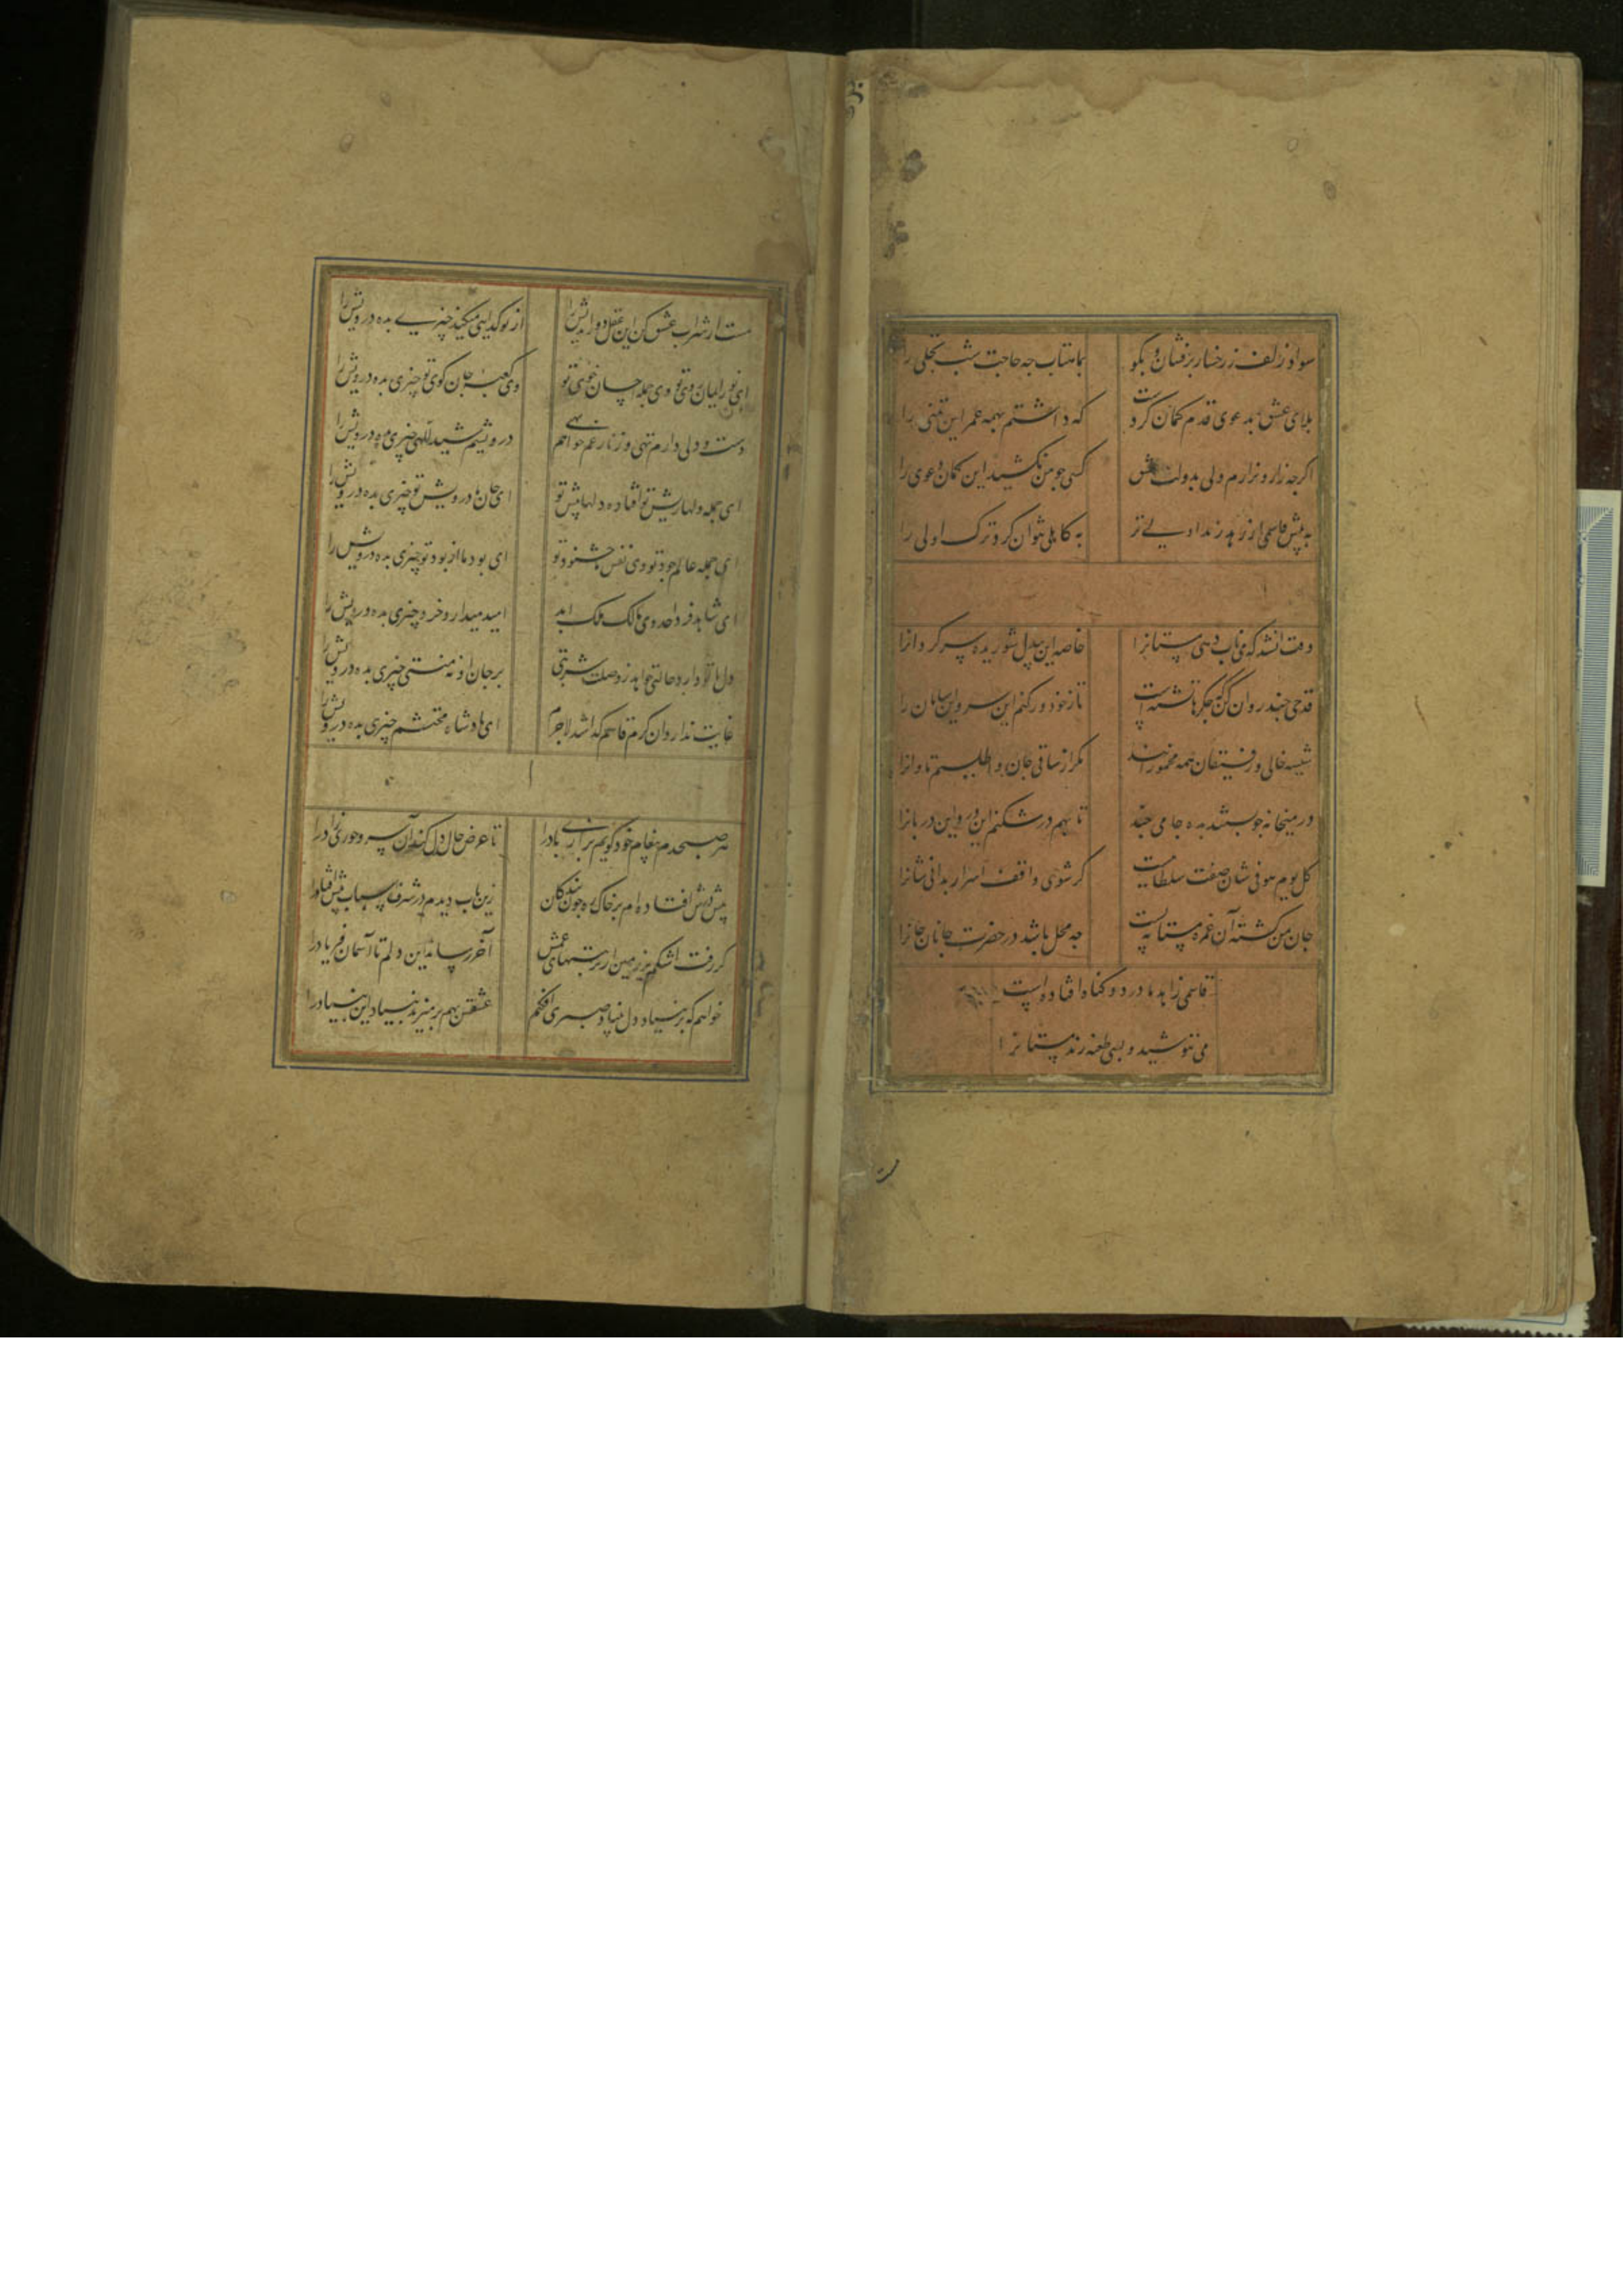 سواد زلف ز رخسار برفشان و بکو بماهتاب چه حاجت شب تجلی را
بلای عشق بدعوی قدم کمان کردست که داشتم بهمه عمر این تمنی را
اکرچه زار و نزارم ولی بدولت عشق کسی چو من نکشید این کمان دعوی را
به پیش قاسمی از زهد رندی اولی تر به کاهلی نتوان کرد ترک اولی را
وقت انشد که می ناب دهی مستانرا خاصه این بیدل شوریده سرکردانرا
قدحی چند روان کن که جکرها تشنه است تا ز خود دور کنم این سر و این سامان را
شیشه خالی و رفیقان همه مخمورانند مکر از ساقی جان واطلبیم تاوانرا
در میخانه چو بستند بده جامی چند تا بهم درشکنم این در و این دربانرا
کل یوم هو فی شان صفت سلطانیست کر شوی واقف اسرار بدانی شانرا
جان من کشته آن غمزه مستانه تست چه محل باشد در حضرت جانان جانرا
قاسمی زاهد ما در دو کناه افتاده است
می ننوشید و بسی طعنه زند مستانرا
مست از شراب عشق کن این عقل دوراندیش را از تو کدایی میکند چیزی بده درویش را
ای نور ایمان روی تو وی جمله احسان خوی تو وی کعبه جان کوی تو چیزی بده درویش را
دست و دلی دارم تهی وز نار غم خواهم بهی درویشم شیء اللهی چیزی بده درویش را
ای جمله دلها ریش تو افتاده دلها پیش تو ای جان ما درویش تو چیزی بده درویش را
ای جمله عالم جود تو وی نفس ما خشنود تو ای بود ما از بود تو چیزی بده درویش را
ای شاهد فرد احد وی مالک ملک ابد امید میدارد خرد چیزی بده درویش را
دل با تو دارد حالتی خواهد ز وصلت شربتی بر جان او نه منتی چیزی بده درویش را
غایت ندارد آن کرم قاسم کدا شد لاجرم ای پادشاه محتشم چیزی بده درویش را
هر صبحدم پیغام خود کویم بزاری باد را تا عرض حال دل کند آن سرو حوری زاد را
پیش درش افتاده ام بر خاک ره چون بندکان
کر رفت اشکم بر زمین از تربتهای غمش آخر رساند این دلم تا آسمان فریاد را
خواهم که بر بنیاد دل بنیاد صبری افکنم عشقش بهم بر میزند بنیاد این بنیاد را